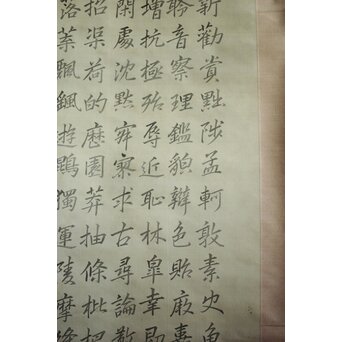 新勸賞黜陟孟軻敦素史魚
聆音察理鑑貌辯色貽厥嘉
增抗極殆辱近恥林皐幸即
閑處沈默寂寥求古尋論散
招渠荷的歷園莽抽條枇杷
落葉飄颻遊鵾獨運陵摩絳